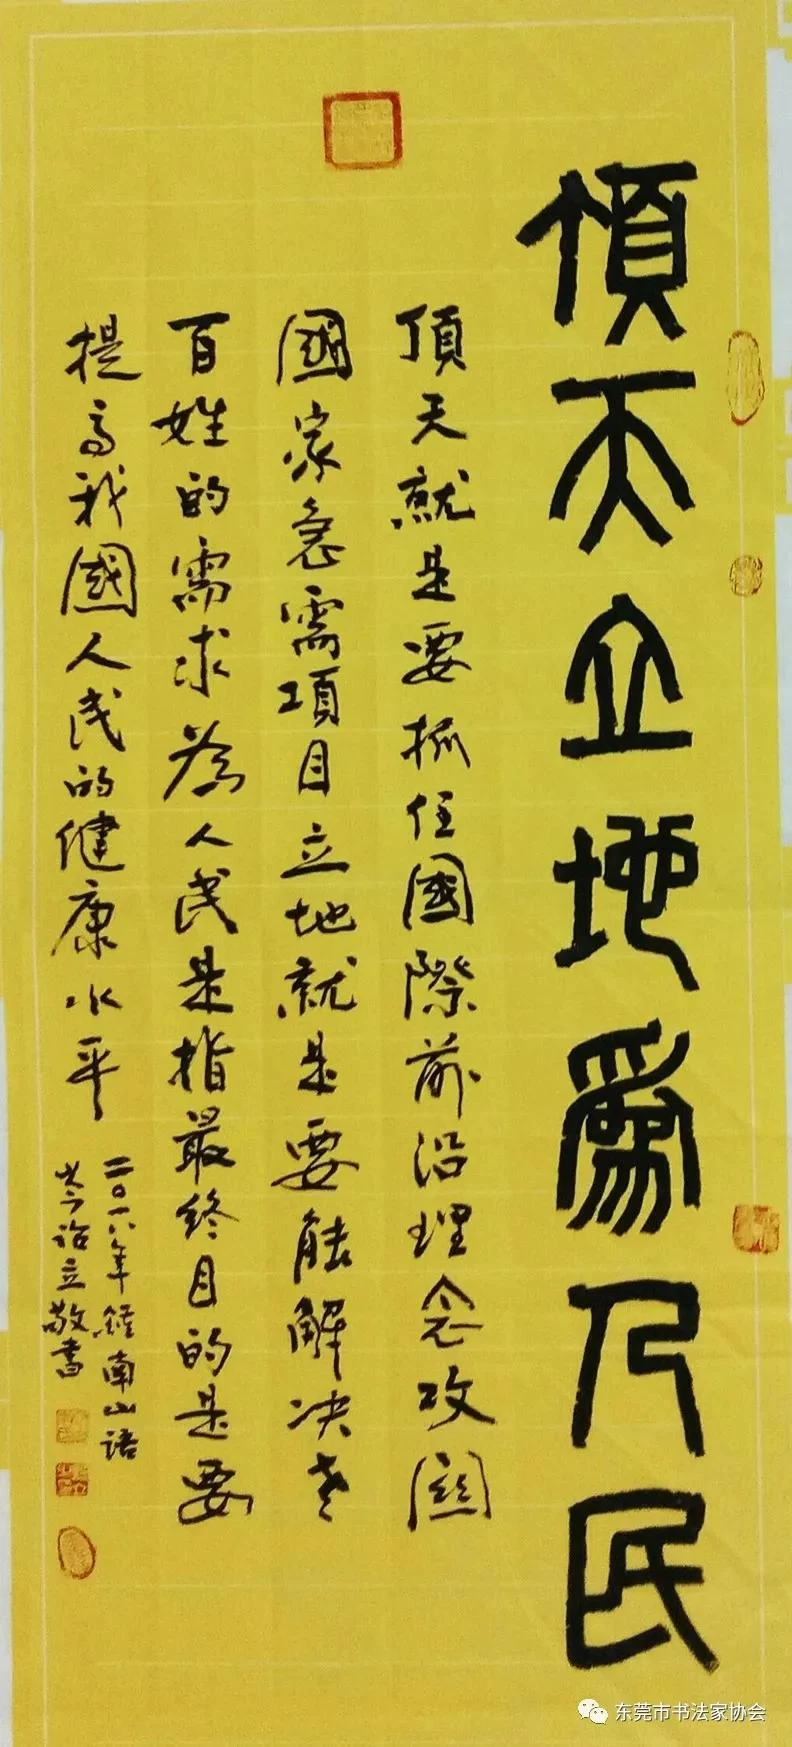 頂天立地為人民
頂天就是要抓住國際前沿理念攻關
國家急需項目立地就是要能解决老
百姓的需求為人民是指最終目的是要
提高我國人民的健康水平
二〇一八年錄南山語
岑詒立敬書
东莞市书法家协会